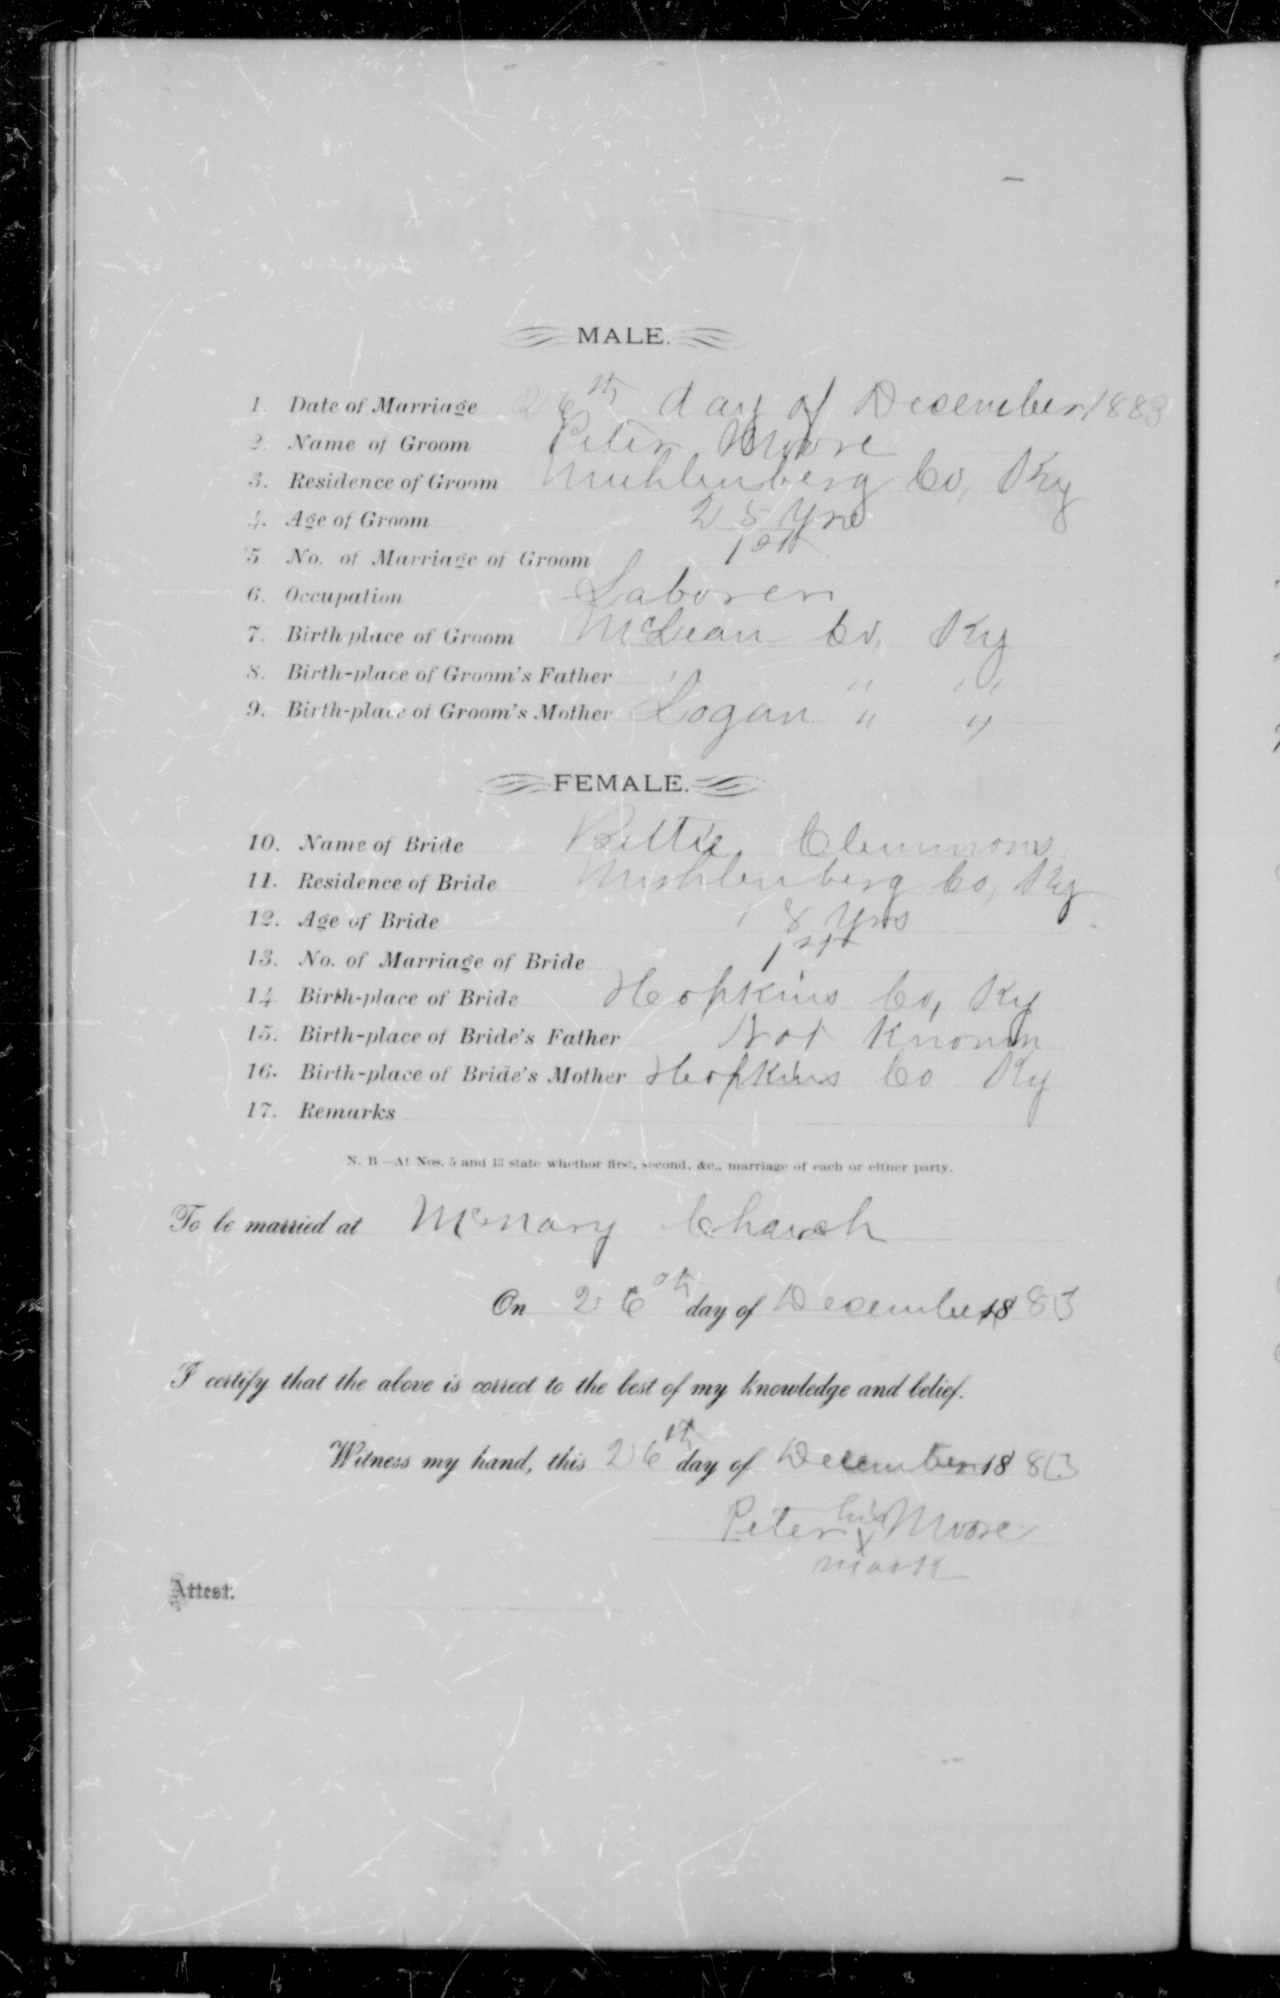 MALE.
1. Date of Marriage 26th day of December 1883
2. Name of Groom Peter Moore
3. Residence of Groom Muhlenberg Co, Ky
4. Age of Groom 25 Yrs
5 No. of Marriage of Groom 1st
6. Occupation Laborer
7. Birth-place of Groom McLean Co, Ky
8. Birth-place of Groom's Father " " "
9. Birth-place of Groom's Mother Logan " "
FEMALE.
10. Name of Bride Bettie Clemmons
11. Residence of Bride Muhlenberg Co, Ky
12. Age of Bride 18 Yrs
13. No. of Marriage of Bride 1st
14 Birth-place of Bride Hopkins Co, Ky
15. Birth-place of Bride's Father Not Known
16. Birth-place of Bride's Mother Hopkins Co Ky
17. Remarks
N. B.—At Nos. 5 and 13 state whether first, second, &c., marriage of each or either party.
To be married at McNary Church
On 26th day of December 1883
I certify that the above is correct to the best of my knowledge and belief.
Witness my hand, this 26th day of December 1883
Peter his x mark Moore
Attest.